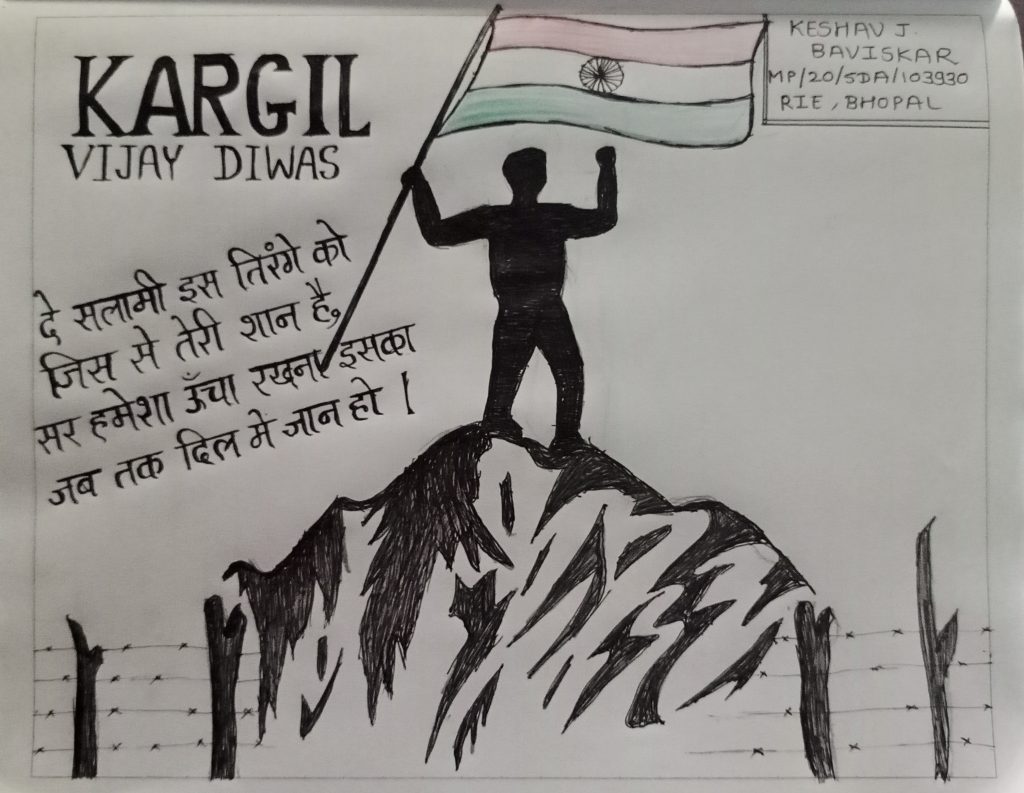 KARGIL
VIJAY DIWAS
KESHAV J.
BAVISKAR
MP/20/SDA/103930
RIE, BHOPAL
दे सलामी इस तिरंगे को
जिस से तेरी शान है,
सर हमेशा ऊँचा रखना इसका
जब तक दिल मे जान हो ।